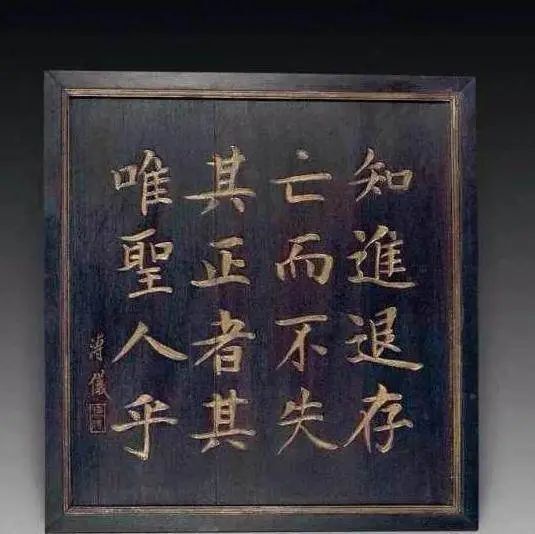 知進退存
亡而不失
其正者其
唯聖人乎
溥儀